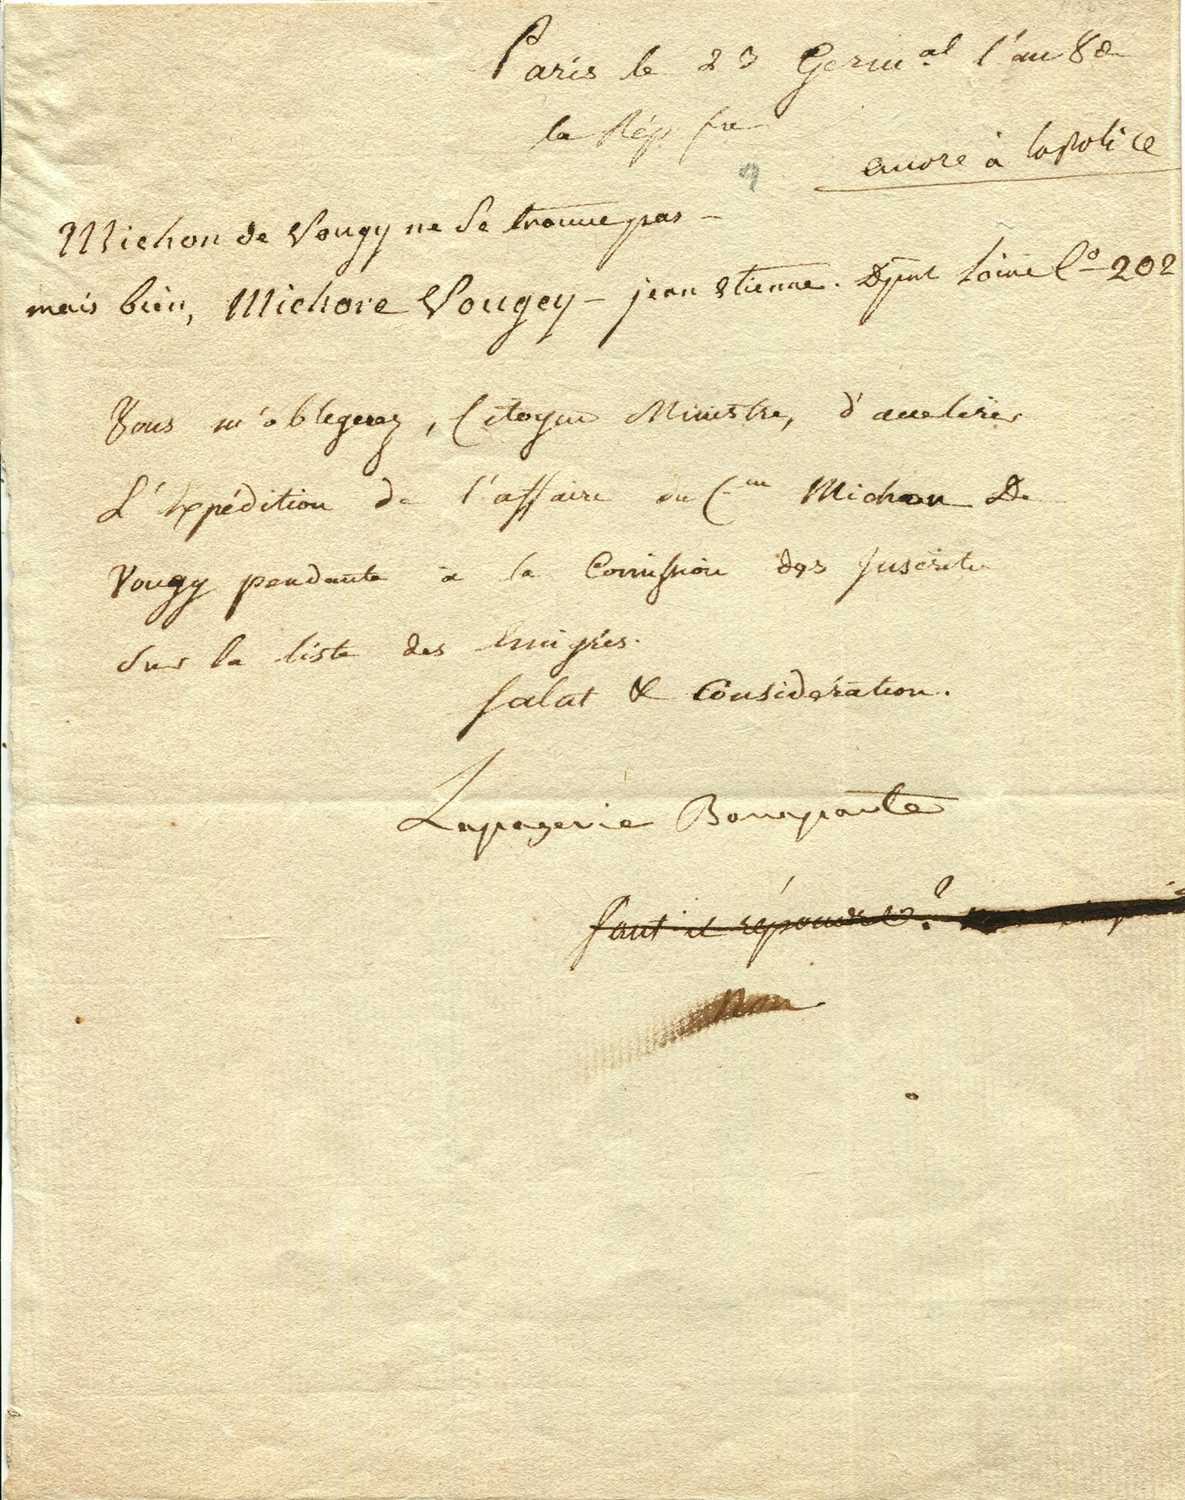 Paris le 23 Germ.al l'an 8 de
la Rép fre
encore à la police
Michon de Vougy ne se trouve pas -
mais bien, Michore Vougey - jean Etienne. Dpnt Loire fo 202
Vous m'obligerez, Citoyen Ministre, d'accelérer
L'Expédition de l'affaire du C.en Michon De
Vougy pendante à la Comission des Inscrits
Sur la liste des Emigrés.
Salut & Considération.
Lapagerie Bonaparte
faut il répondre?
non